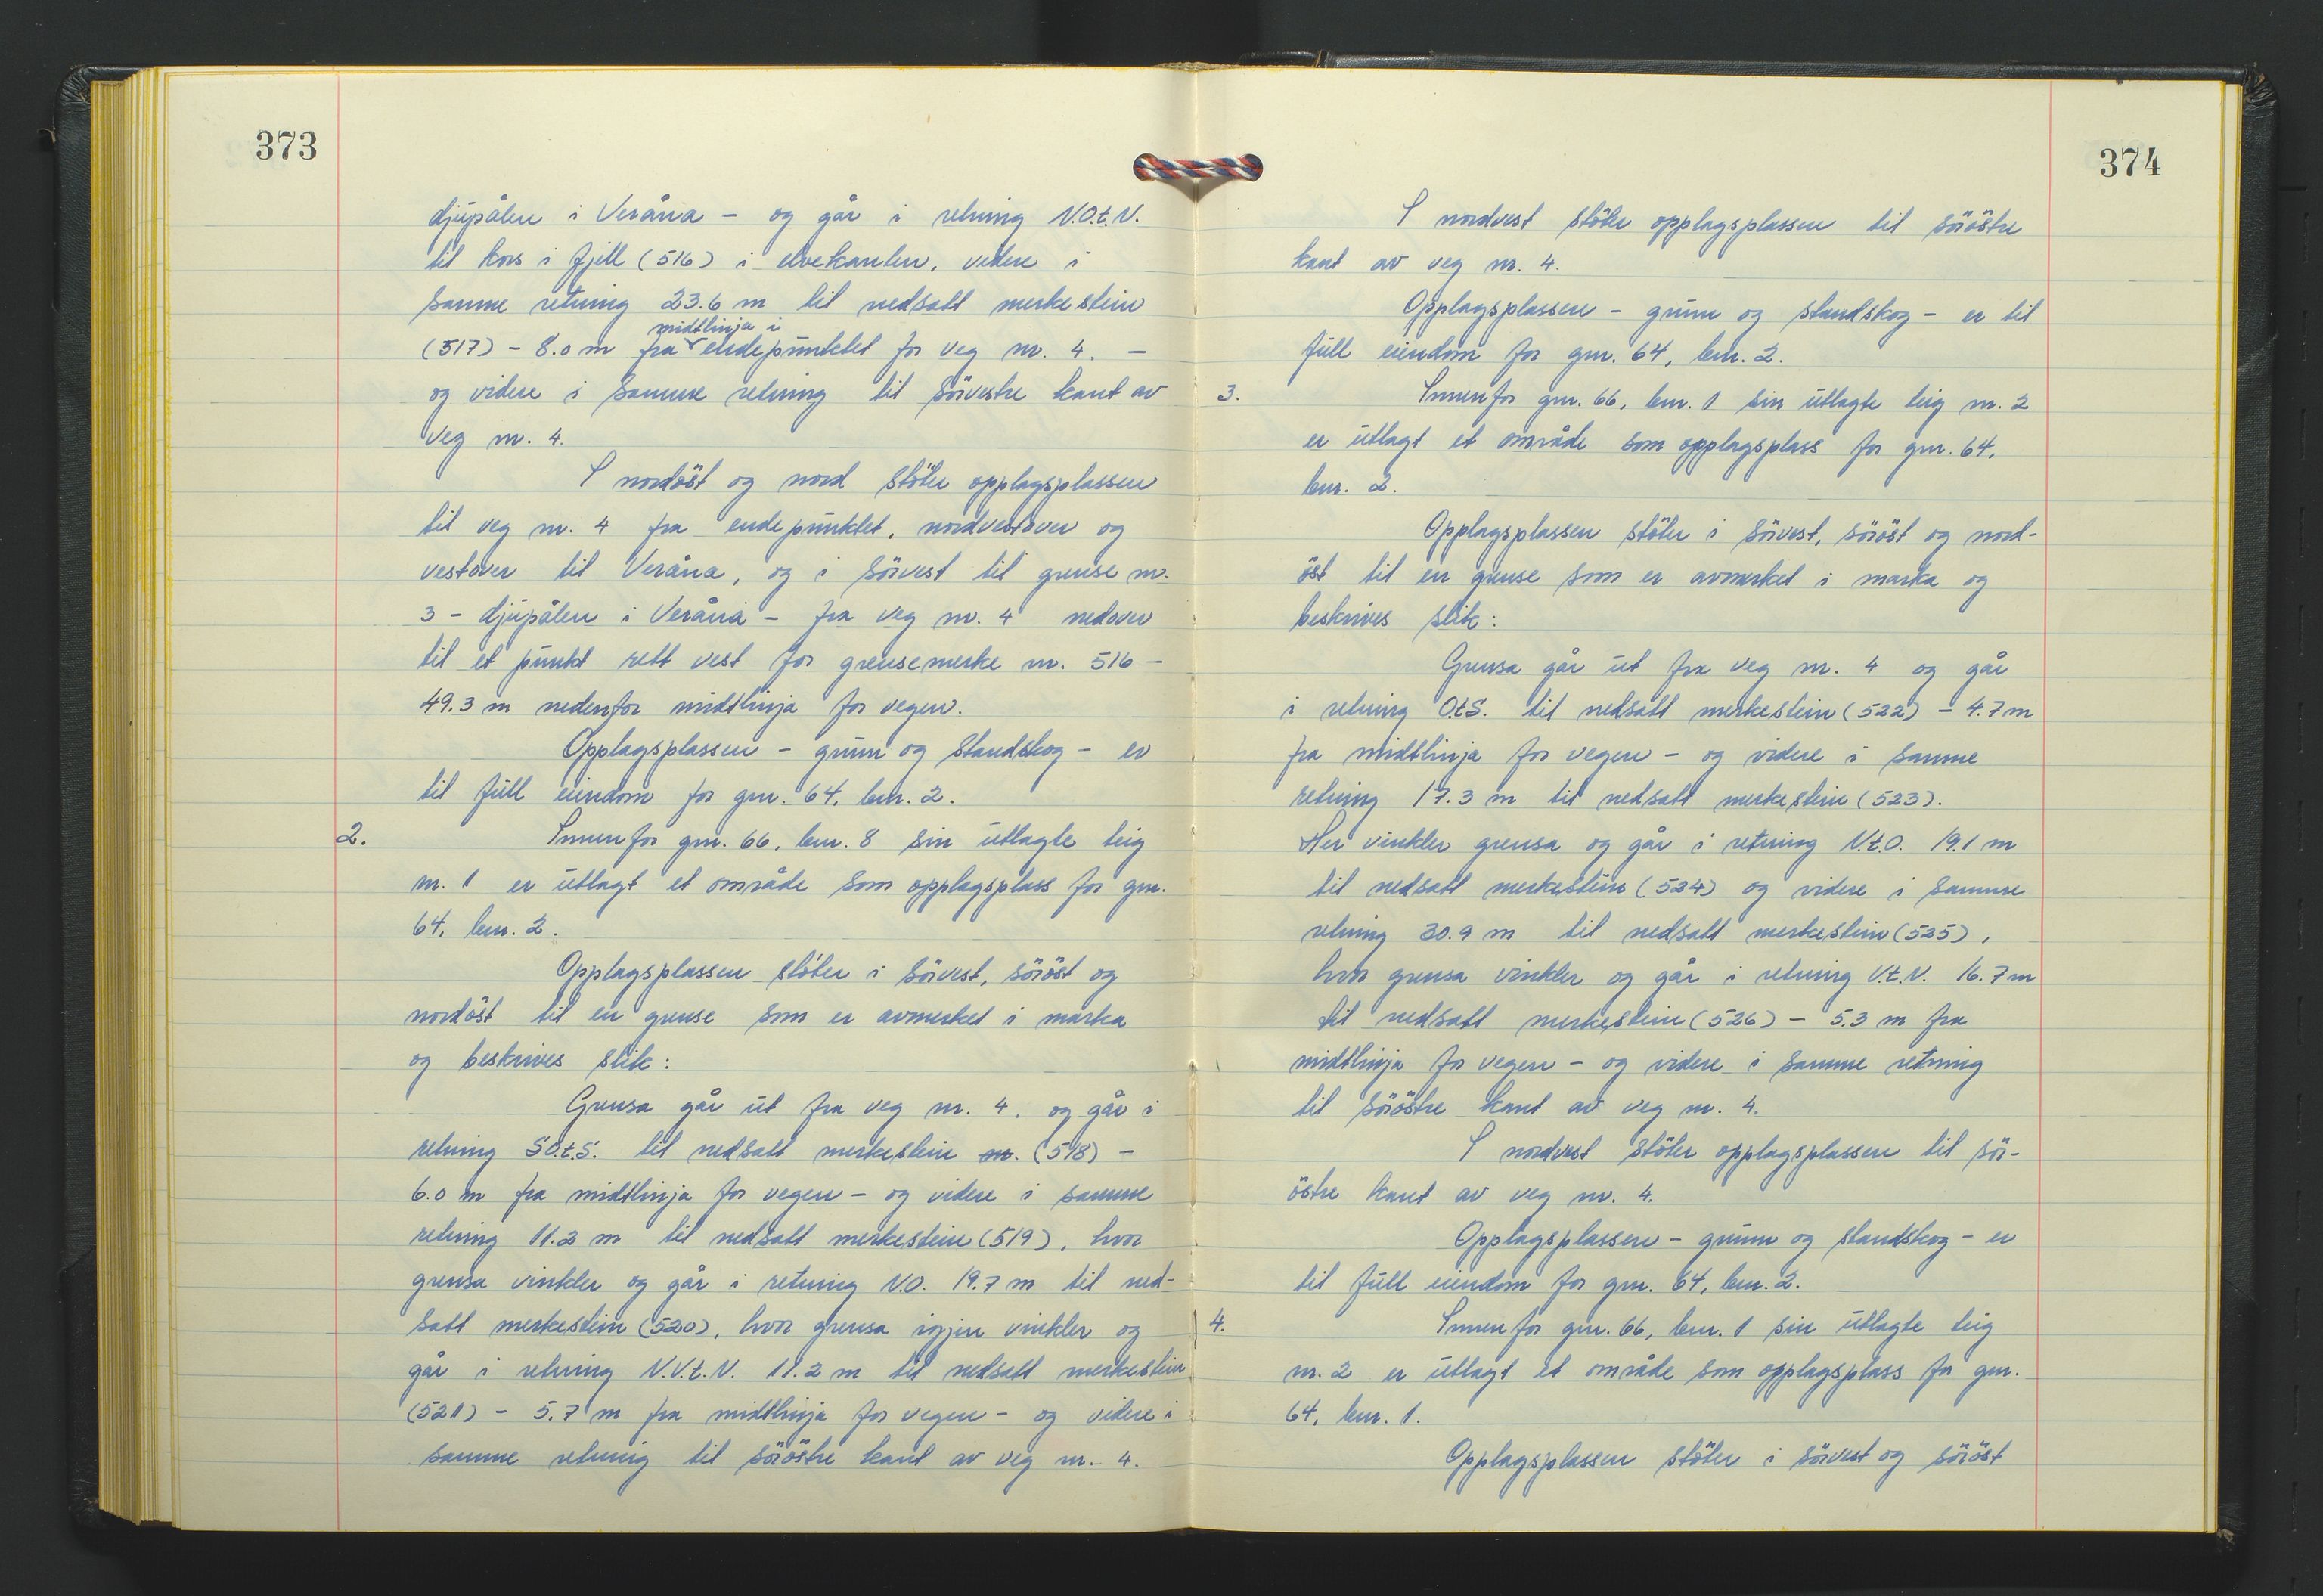 373
djupålen i Veråna - og går i retning N.O.t.N.
til kors i fjell (516) i elvekanten, videre i
samme retning 23.6 m til nedsatt merkestein
midtlinja i
(517) - 8.0 m fra endepunktet for veg nr. 4. -
og videre i samme retning til sörvestre kant av
veg nr. 4.
I nordöst og nord stöter opplagsplassen
til veg nr. 4 fra endepunktet, nordvestover og
vestover til Veråna, og i sörvest til grense nr.
3 - djupålen i Veråna - fra veg nr. 4 nedover
til et punkt rett vest for grensemerke nr. 516 -
49.3 m nedenfor midtlinja for vegen.
Opplagsplassen - grunn og standskog - er
til full eiendom for gnr. 64, bnr. 2.
2. Innenfor gnr. 66, bnr. 8 sin utlagte teig
nr. 1 er utlagt et område som opplagsplass for gnr.
64, bnr. 2.
Opplagsplassen stöter i sörvest, söröst og
nordöst til en grense som er avmerket i marka
og beskrives slik:
Grensa går ut fra veg nr. 4, og går i
retning S.O.t.S. til nedsatt merkestein nr. (518) -
6.0 m fra midtlinja for vegen - og videre i samme
retning 11.2 m til nedsatt merkestein (519), hvor
grensa vinkler og går i retning N.O. 19.7 m til ned-
satt merkestein (520), hvor grensa igjen vinkler og
går i retning N.V.t.N. 11.2 m til nedsatt merkestein
(521) - 5.7 m fra midtlinja for vegen - og videre i
samme retning til söröstre kant av veg nr. 4.
374
I nordvest stöter opplagsplassen til söröstre
kant av veg nr. 4.
Opplagsplassen - grunn og standskog - er til
full eiendom for gnr. 64, bnr. 2.
3. Innenfor gnr. 66, bnr. 1 sin utlagte teig nr. 2
er utlagt et område som opplagsplass for gnr. 64,
bnr. 2.
Opplagsplassen stöter i sörvest, söröst og nord-
öst til en grense som er avmerket i marka og
beskrives slik:
Grensa går ut fra veg nr. 4 og går
i retning O.t.S. til nedsatt merkestein (522) - 4.7 m
fra midtlinja for vegen - og videre i samme
retning 17.3 m til nedsatt merkestein (523).
Her vinkler grensa og går i retning N.t.O. 19.1 m
til nedsatt merkestein (524) og videre i samme
retning 30.9 m til nedsatt merkestein (525),
hvor grensa vinkler og går i retning V.t.N. 16.7 m
til nedsatt merkestein (526) - 5.3 m fra
midtlinja for vegen - og videre i samme retning
til söröstre kant av veg nr. 4.
I nordvest stöter opplagsplassen til sör-
östre kant av veg nr. 4.
Opplagsplassen - grunn og standskog - er
til full eiendom for gnr. 64, bnr. 2.
4. Innenfor gnr. 66, bnr. 1 sin utlagte teig
nr. 2 er utlagt et område som opplagsplass for gnr.
64, bnr. 1.
Opplagsplassen stöter i sörvest og söröst